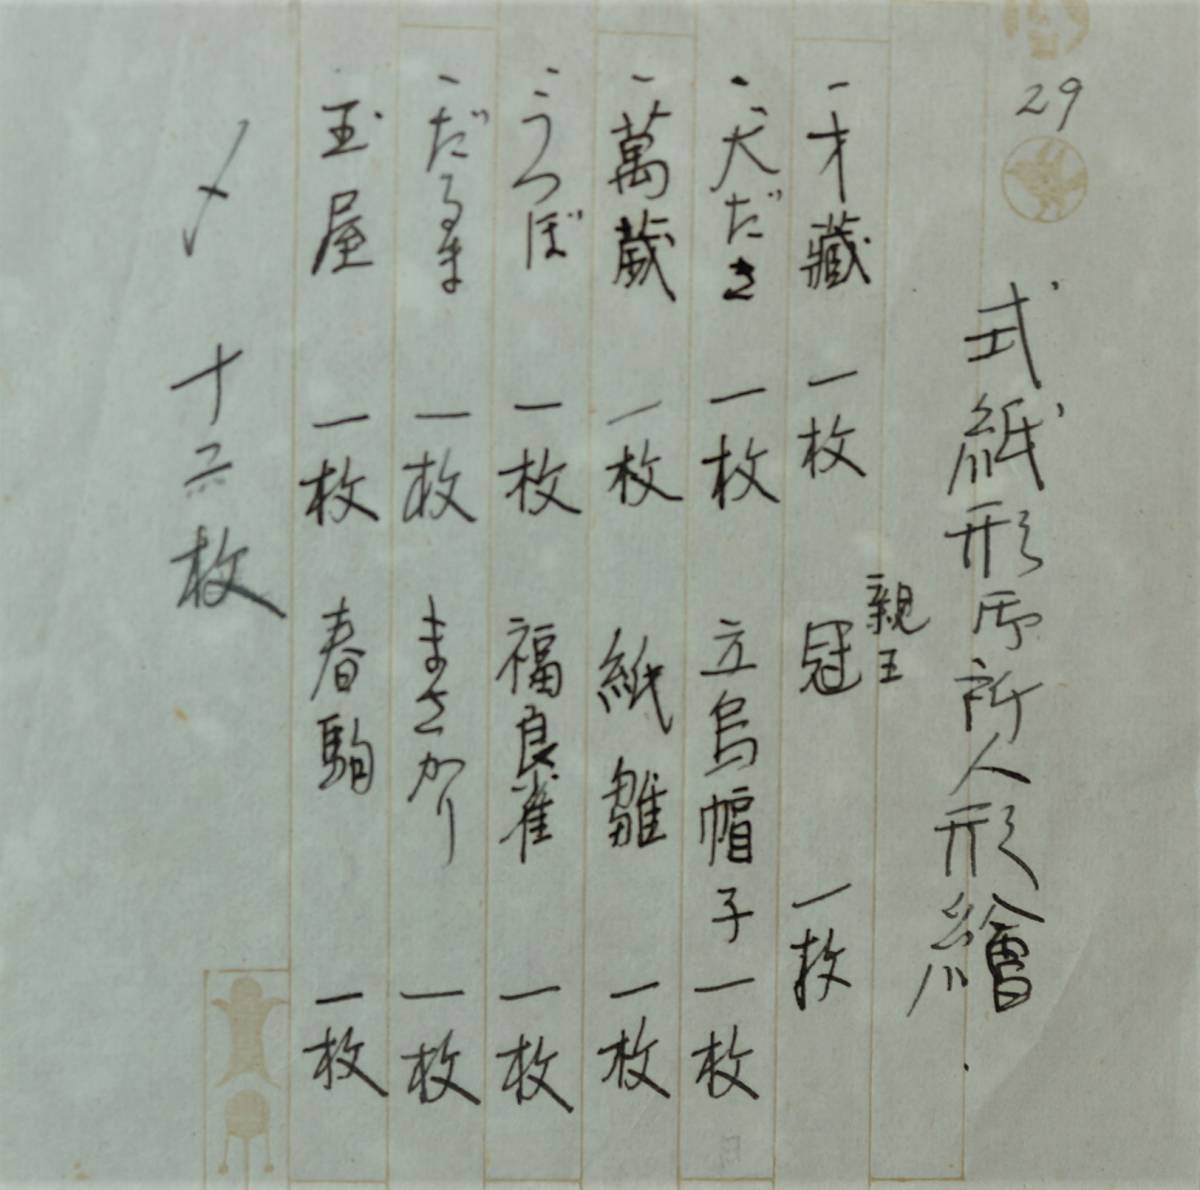 29
式紙形御所人形繪
一才藏 一枚 親王 冠 一枚
一犬だき 一枚 立烏帽子 一枚
一萬歳 一枚 紙雛 一枚
一うつぼ 一枚 福良雀 一枚
一だるま 一枚 まさかり 一枚
一玉屋 一枚 春駒 一枚
〆 十二枚